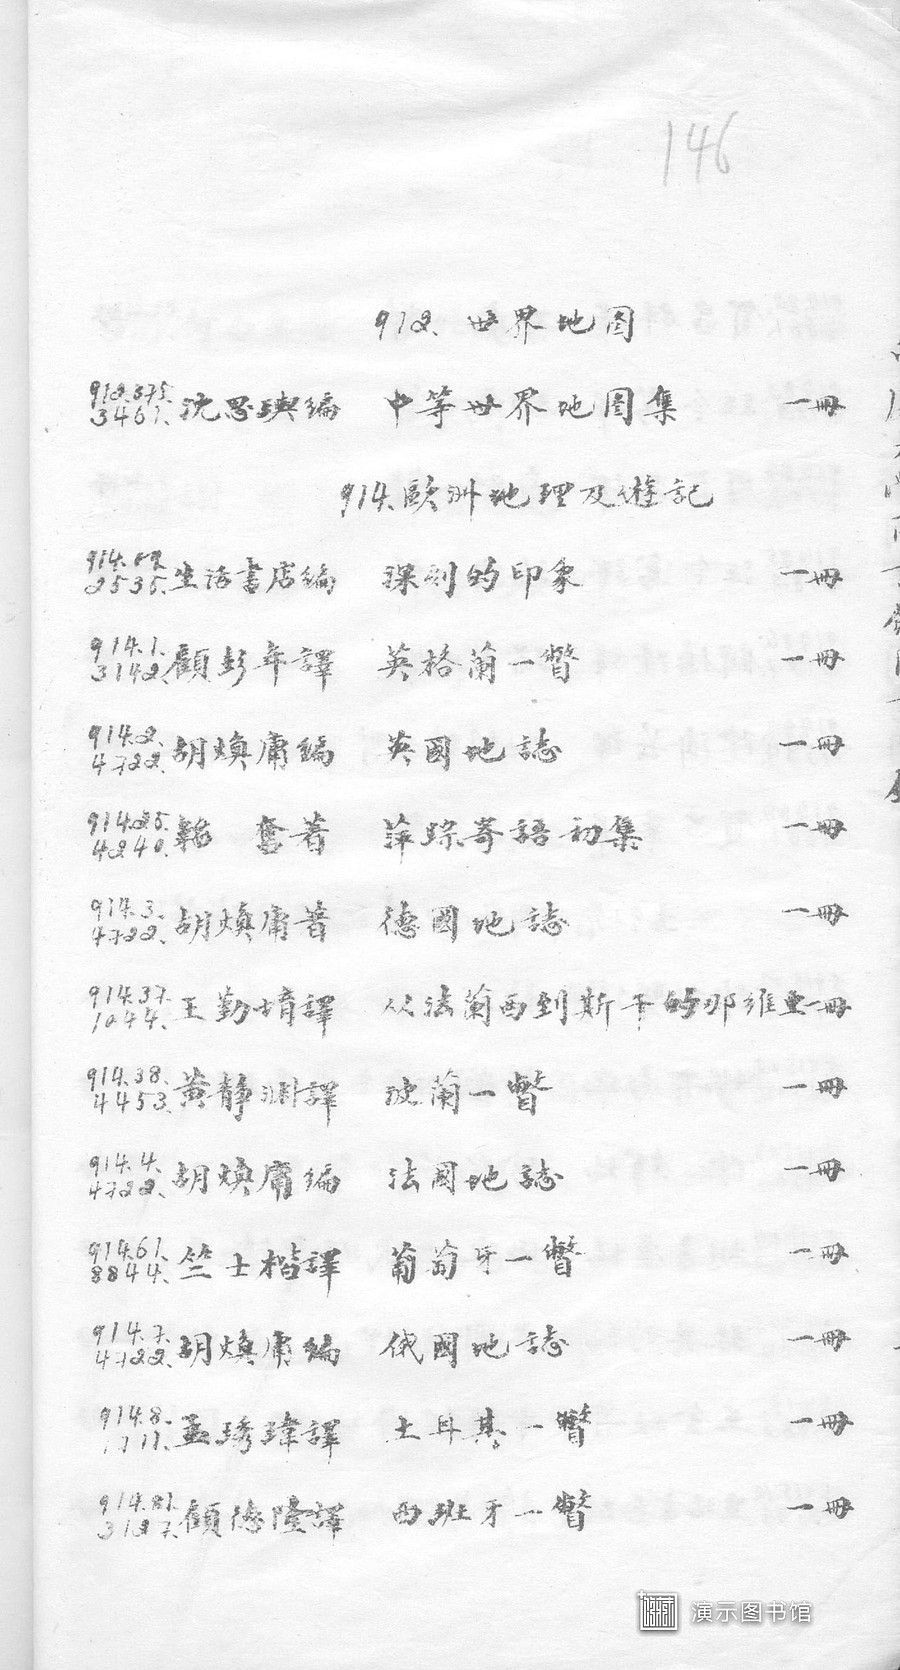 146
912. 世界地图
912.375. 3461. 沈思璵编 中等世界地图集 一册
914.欧洲地理及遊記
2535. 生活書店编 深刻的印象 一册
914.1. 3142. 顧彭年譯 英格蘭一瞥 一册
914.2. 4722. 胡焕庸编 英國地誌 一册
914.25. 4240. 韜 奮著 萍踪寄語初集 一册
914.3. 4722. 胡焕庸著 德國地誌 一册
914.37. 1044. 王勤堉譯 从法蘭西到斯干的那維亜 一册
914.38. 4453. 黄静渊譯 波蘭一瞥 一册
914.4. 4722. 胡焕庸编 法國地誌 一册
914.61. 8844. 竺士楷譯 葡萄牙一瞥 一册
914.7. 4722. 胡焕庸编 俄國地誌 一册
914.8. 1711. 孟琇瑋譯 土耳其一瞥 一册
914.81. 3127. 顧德隆譯 西班牙一瞥 一册
演示图书馆